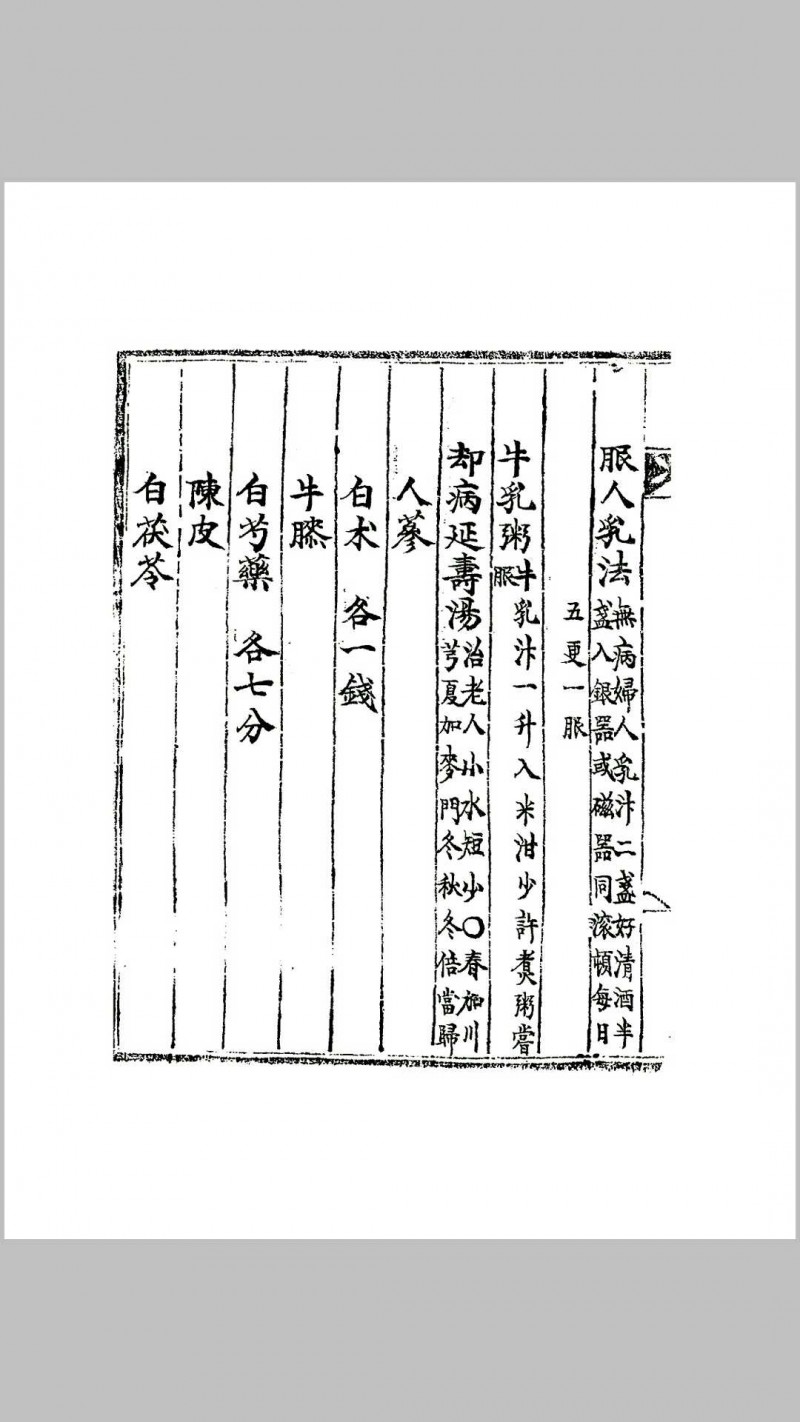 服人乳法 無病婦人乳汁二盞好清酒半
盞入銀器或磁器同滚頓每日
五更一服
牛乳粥 牛乳汁一升入米泔少許煑粥嘗
服
却病延壽湯 治老人小水短少〇春加川
芎夏加麥門冬秋冬倍當歸
人蔘
白朮 各一錢
牛膝
白芍藥 各七分
陳皮
白茯苓